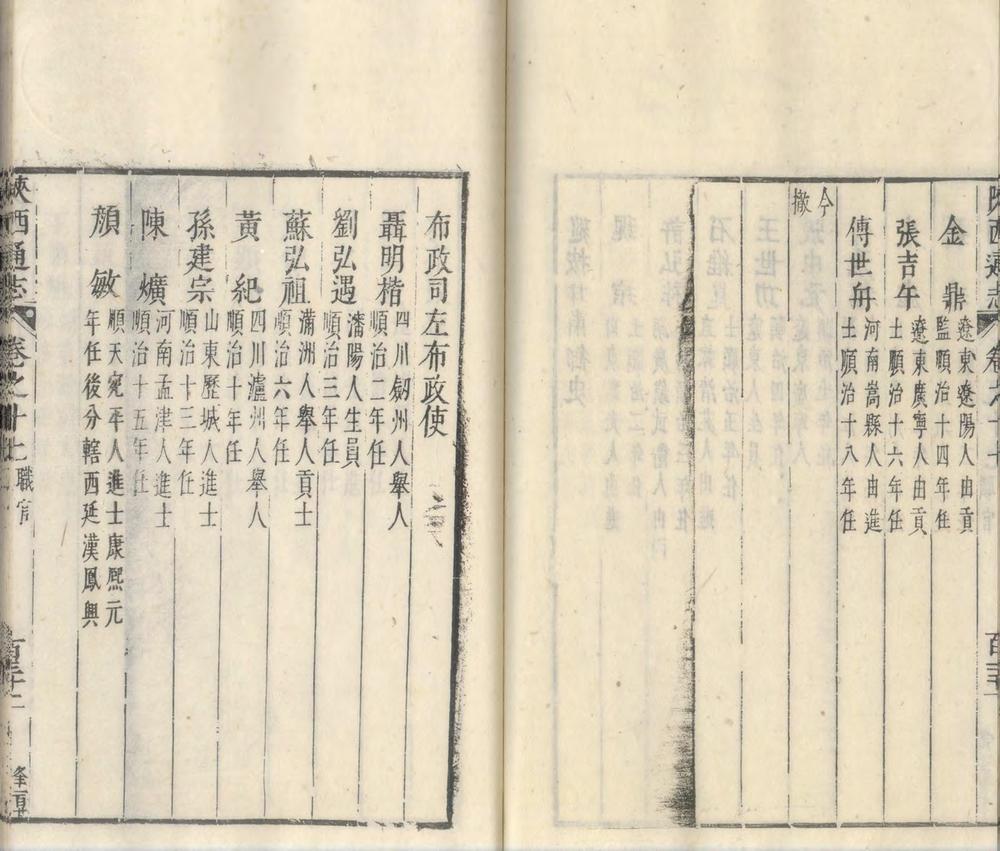 陝西通志 卷之十七
金鼎 遼東遼陽人由貢
監順治十四年任
張吉午 遼東廣寧人由貢
士順治十六年任
傅世舟 河南嵩縣人由進
士順治十八年任
今撤
布政司左布政使
聶明楷 四川劒州人舉人
順治二年任
劉弘遇 瀋陽人生員
順治三年任
蘇弘祖 滿洲人舉人貢士
順治六年任
黃紀 四川瀘州人舉人
順治十年任
孫建宗 山東歷城人進士
順治十三年任
陳爌 河南孟津人進士
順治十五年任
顏敏 順天宛平人進士康熙元
年任後分轄西延漢鳳興
陝西通志 卷之十七 職官